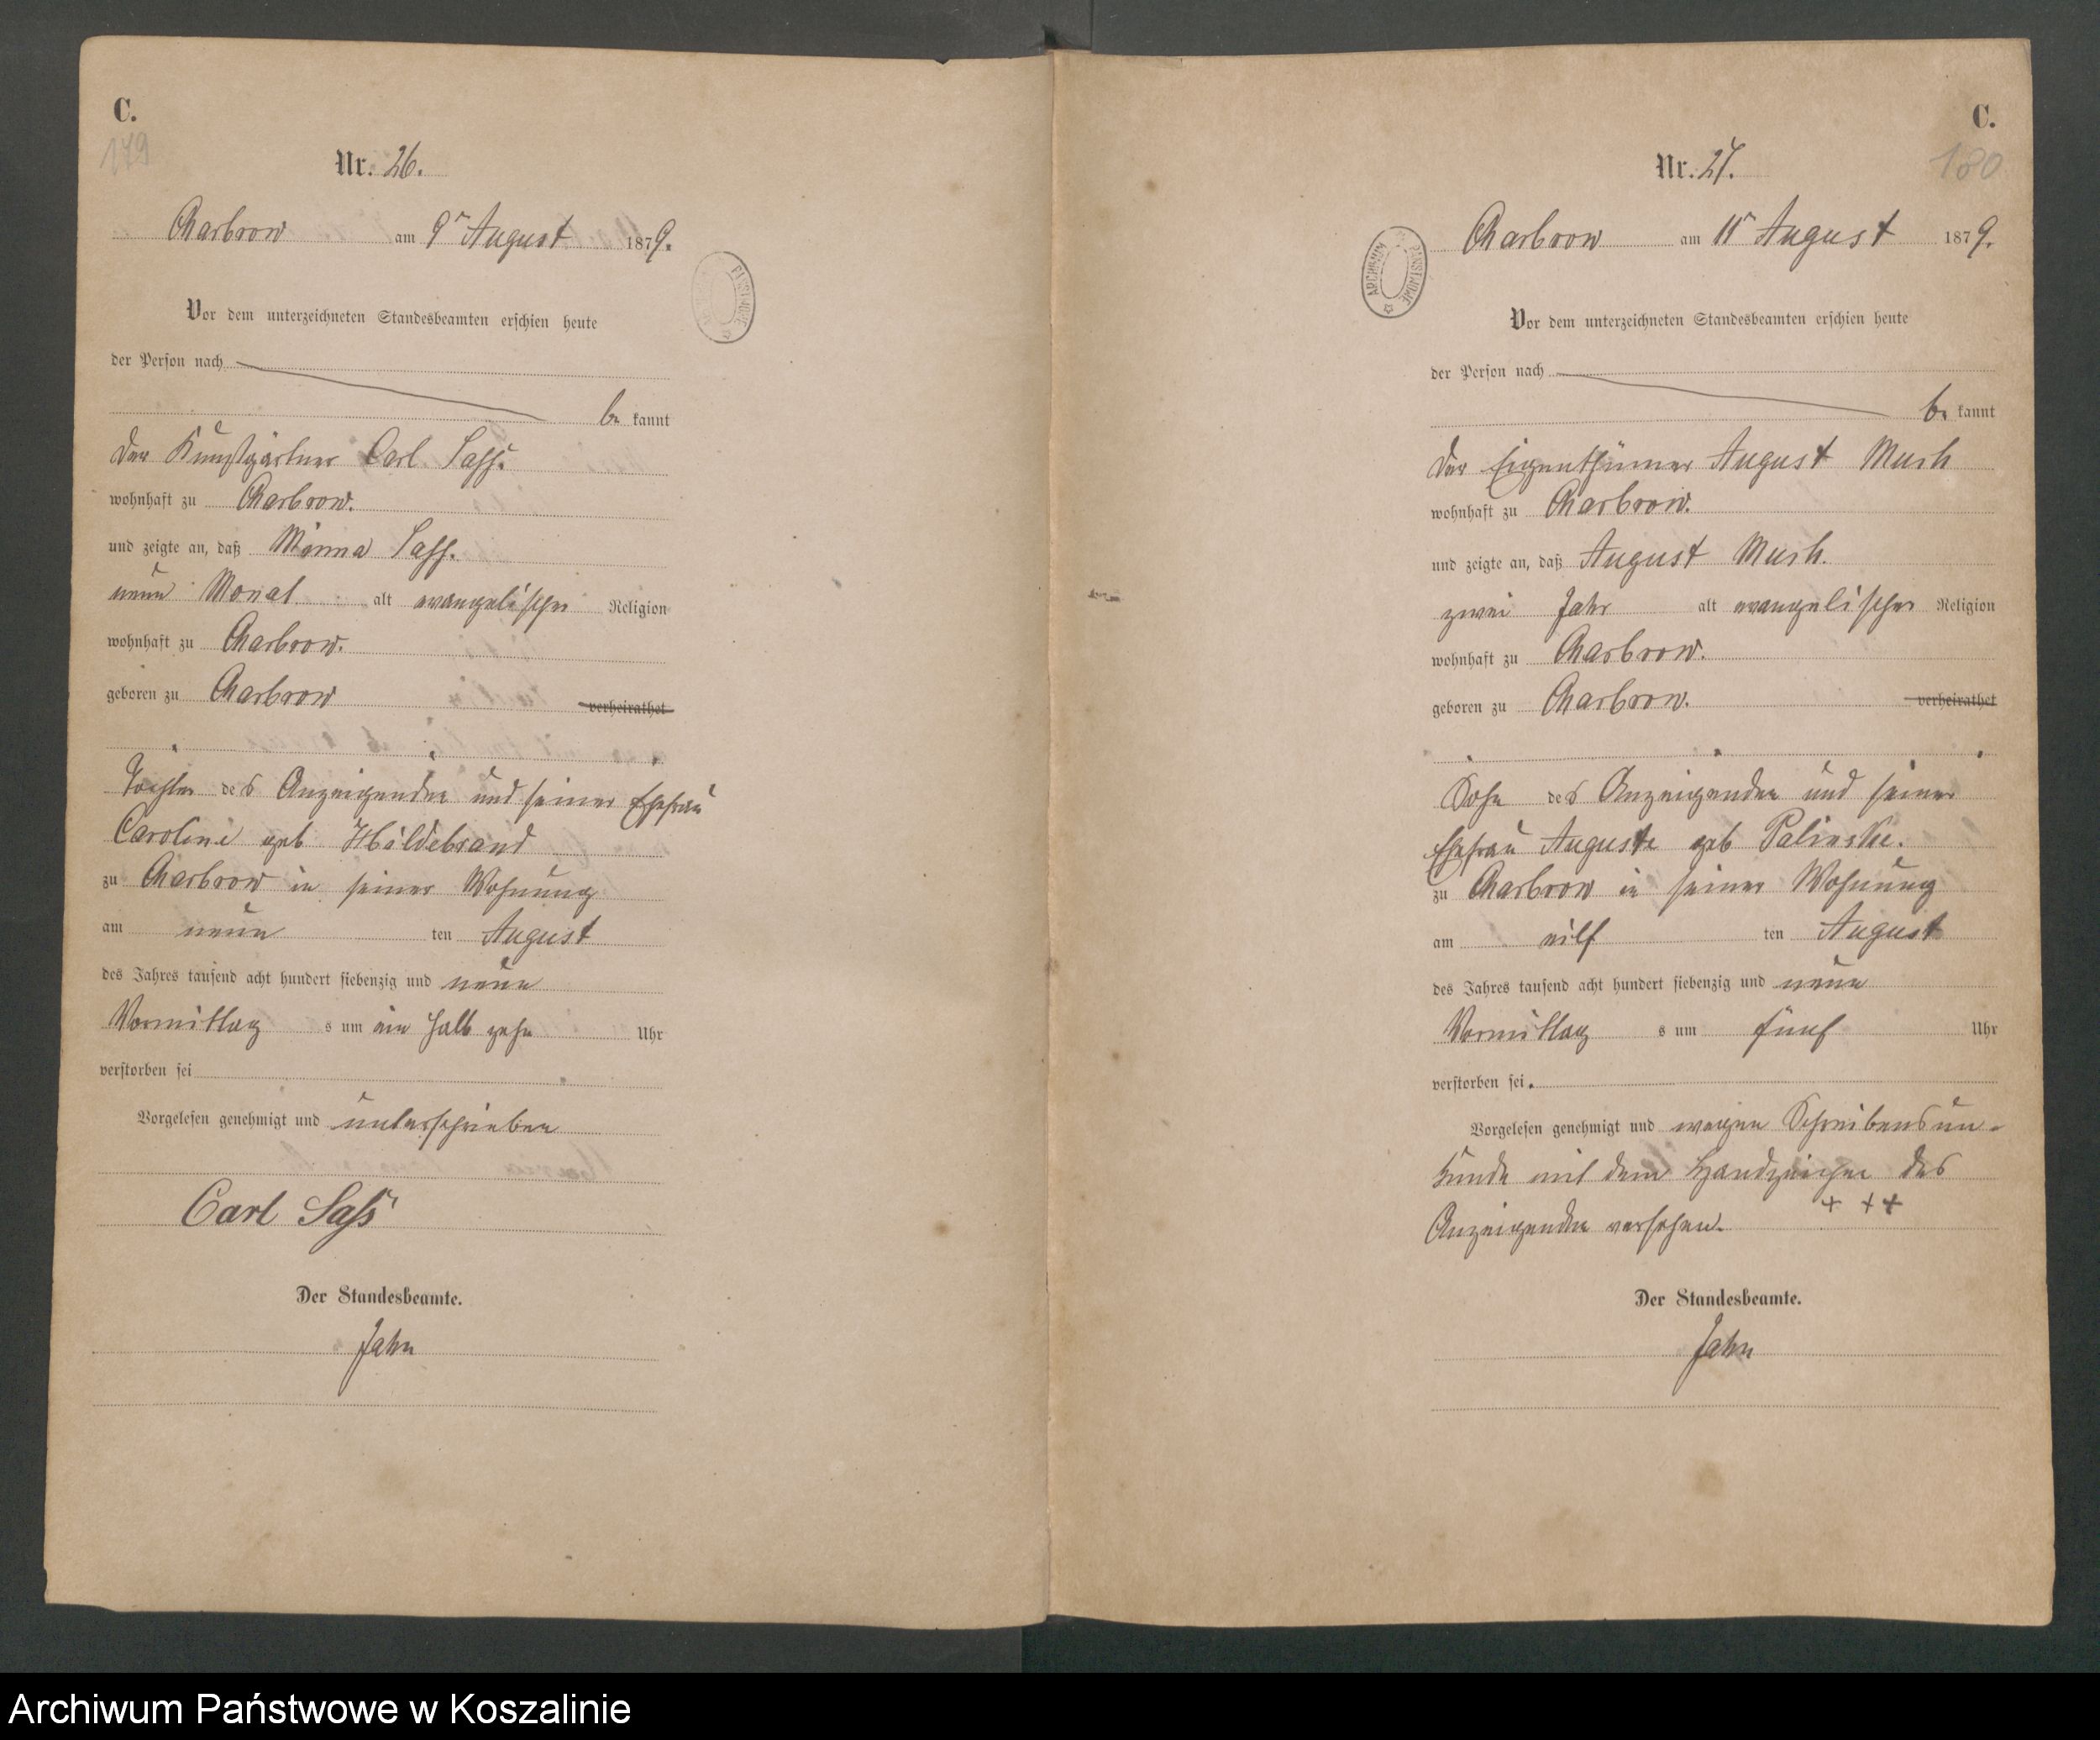 C.
179
Nr. 26.
Charbrow am 9ten August 1879.
Vor dem unterzeichneten Standesbeamten erschien heute
der Person nach
be kannt
der Kunstgärtner Carl Sass.
wohnhaft zu Charbrow.
und zeigte an, daß Minna Sass.
neun Monat alt evangelischer Religion
wohnhaft zu Charbrow.
geboren zu Charbrow verheirathet
Tochter des Anzeigenden und seiner Ehefrau
Caroline geb Hildebrand
zu Charbrow in seiner Wohnung
am neun ten August
des Jahres tausend acht hundert siebenzig und neun
Vormittag s um ein halb zehn Uhr
verstorben sei
Vorgelesen genehmigt und unterschrieben
Carl Saß
Der Standesbeamte.
Jahn
C.
180
Nr. 27.
Charbrow am 11 August 1879.
ARCHIWUM PAŃSTWOWE
Vor dem unterzeichneten Standesbeamten erschien heute
der Person nach
be kannt
der Eigenthümer August
wohnhaft zu Charbrow.
und zeigte an, daß August
zwei Jahr alt evangelischer Religion
wohnhaft zu Charbrow.
geboren zu Charbrow. verheirathet
Sohn des Anzeigenden und seiner
Ehefrau Auguste geb
zu Charbrow in seiner Wohnung
am eilf ten August
des Jahres tausend acht hundert siebenzig und neun
Vormittag s um fünf Uhr
verstorben sei.
Vorgelesen genehmigt und wegen Schreibensun-
kunde mit dem Handzeichen des
Anzeigenden versehen. + + +
Der Standesbeamte.
Jahn
Archiwum Państwowe w Koszalinie